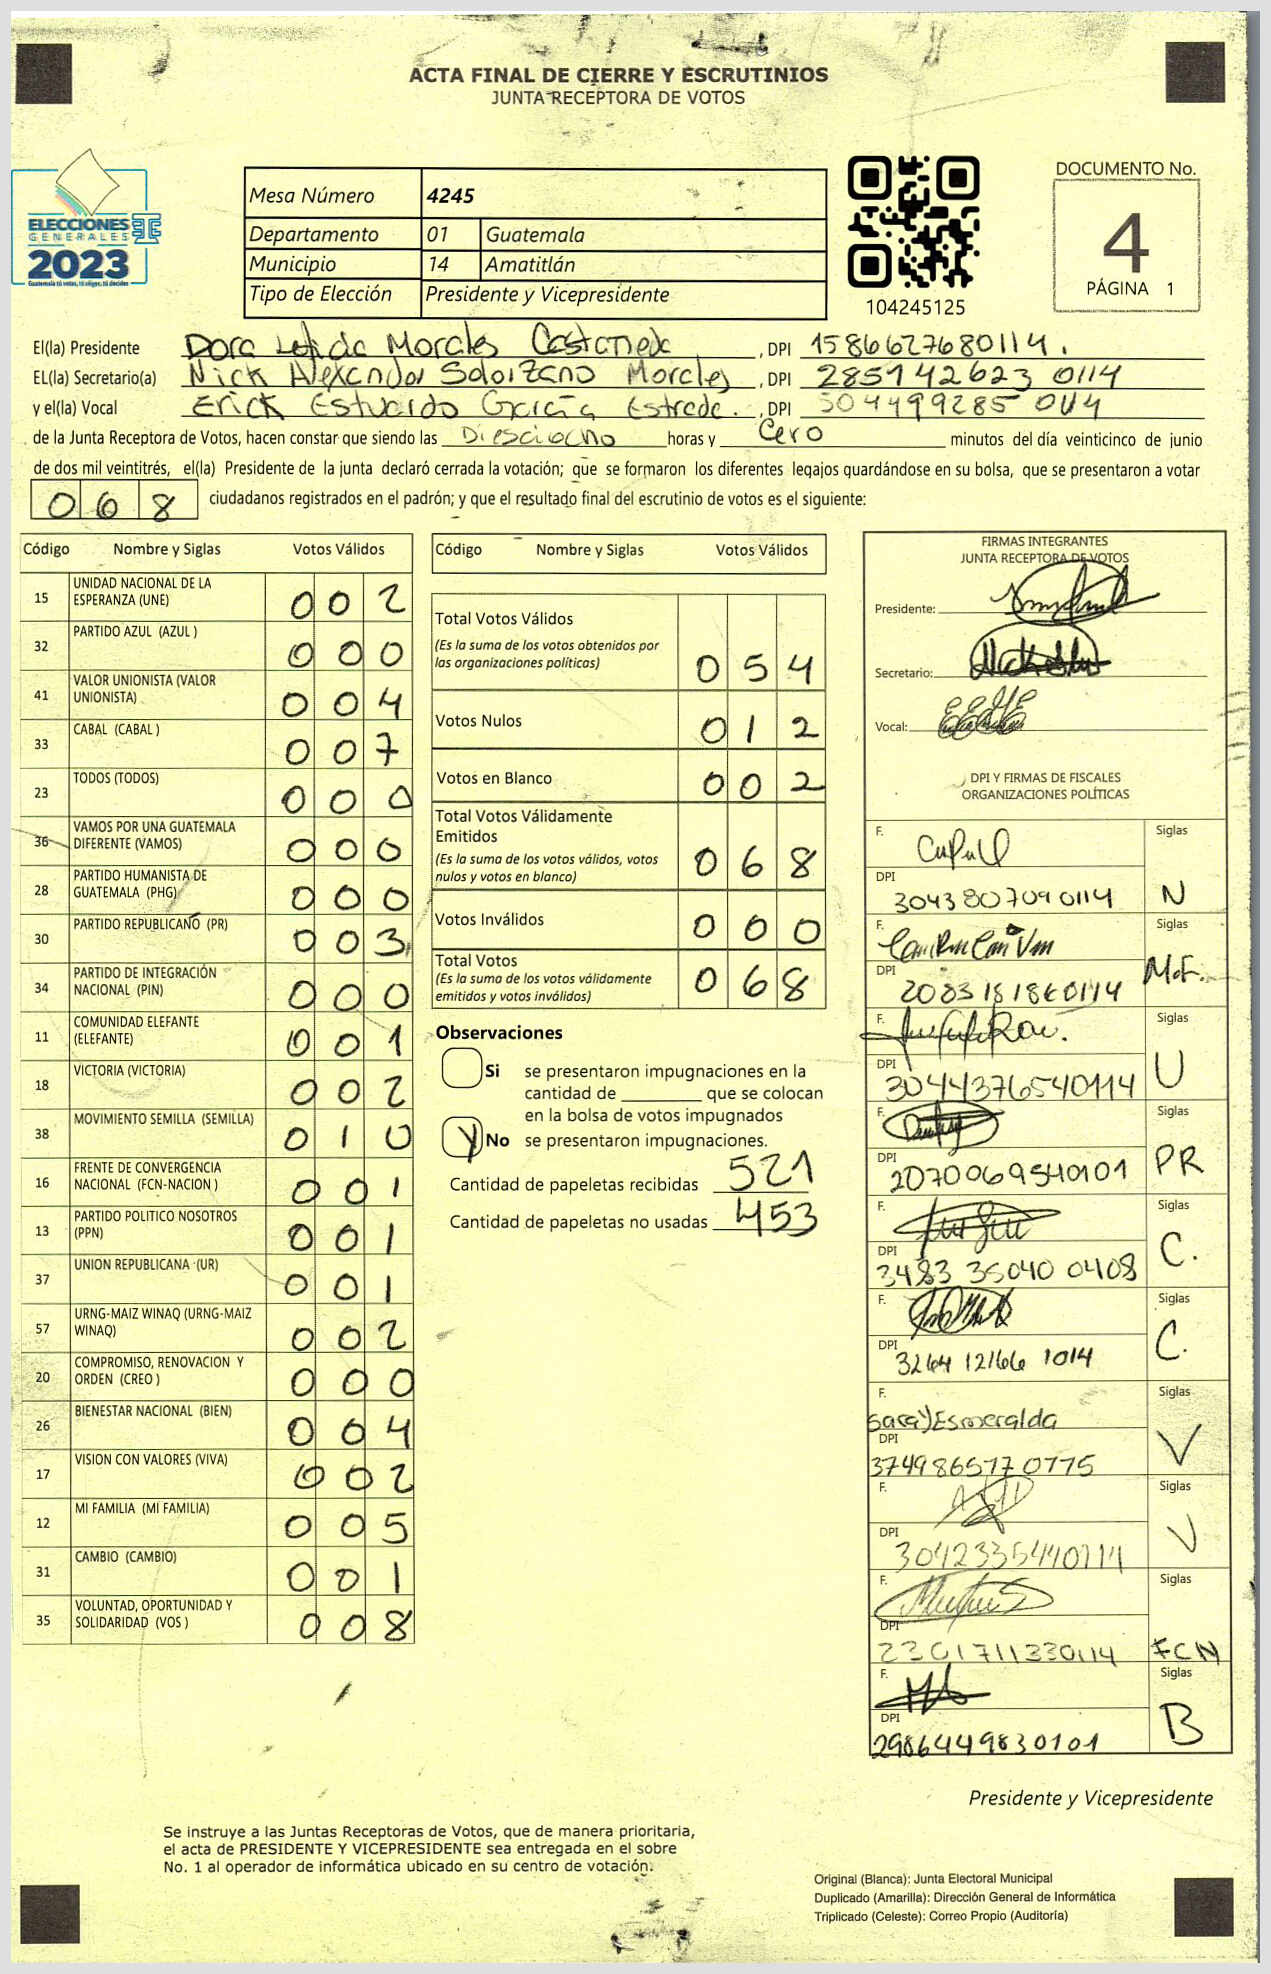 ACTA FINAL DE CIERRE Y ESCRUTINIOS
JUNTA RECEPTORA DE VOTOS
ELECCIONES
GENERALES
2023
Guatemala tú votas, tú eliges, tú decides
Mesa Número 4245
Departamento 01 Guatemala
Municipio 14 Amatitlán
Tipo de Elección Presidente y Vicepresidente
104245125
DOCUMENTO No.
4
PÁGINA 1
El(la) Presidente Dora Leticia Morales Castañeda, DPI 1586627680114.
EL(la) Secretario(a) Nick Alexander Solorzano Morales, DPI 285142623 0114
y el(la) Vocal Erick Estuardo García Estrada., DPI 304499285 0114
de la Junta Receptora de Votos, hacen constar que siendo las Diesciocho horas y Cero minutos del día veinticinco de junio
de dos mil veintitrés, el(la) Presidente de la junta declaró cerrada la votación; que se formaron los diferentes legajos quardándose en su bolsa, que se presentaron a votar
068 ciudadanos registrados en el padrón; y que el resultado final del escrutinio de votos es el siguiente:
Código Nombre y Siglas Votos Válidos
15 UNIDAD NACIONAL DE LA ESPERANZA (UNE) 002
32 PARTIDO AZUL (AZUL ) 000
41 VALOR UNIONISTA (VALOR UNIONISTA) 004
33 CABAL (CABAL ) 007
23 TODOS (TODOS) 000
36 VAMOS POR UNA GUATEMALA DIFERENTE (VAMOS) 000
28 PARTIDO HUMANISTA DE GUATEMALA (PHG) 000
30 PARTIDO REPUBLICANO (PR) 003
34 PARTIDO DE INTEGRACIÓN NACIONAL (PIN) 000
11 COMUNIDAD ELEFANTE (ELEFANTE) 001
18 VICTORIA (VICTORIA) 002
38 MOVIMIENTO SEMILLA (SEMILLA) 010
16 FRENTE DE CONVERGENCIA NACIONAL (FCN-NACION ) 001
13 PARTIDO POLITICO NOSOTROS (PPN) 001
37 UNION REPUBLICANA (UR) 001
57 URNG-MAIZ WINAQ (URNG-MAIZ WINAQ) 002
20 COMPROMISO, RENOVACION Y ORDEN (CREO ) 000
26 BIENESTAR NACIONAL (BIEN) 004
17 VISION CON VALORES (VIVA) 002
12 MI FAMILIA (MI FAMILIA) 005
31 CAMBIO (CAMBIO) 001
35 VOLUNTAD, OPORTUNIDAD Y SOLIDARIDAD (VOS ) 008
Código Nombre y Siglas Votos Válidos
Total Votos Válidos
(Es la suma de los votos obtenidos por las organizaciones políticas) 054
Votos Nulos 012
Votos en Blanco 002
Total Votos Válidamente Emitidos
(Es la suma de los votos válidos, votos nulos y votos en blanco) 068
Votos Inválidos 000
Total Votos
(Es la suma de los votos válidamente emitidos y votos inválidos) 068
Observaciones
Si se presentaron impugnaciones en la
cantidad de ________ que se colocan
en la bolsa de votos impugnados
No se presentaron impugnaciones.
Cantidad de papeletas recibidas 521
Cantidad de papeletas no usadas 453
FIRMAS INTEGRANTES
JUNTA RECEPTORA DE VOTOS
Presidente:
Secretario:
Vocal:
DPI Y FIRMAS DE FISCALES
ORGANIZACIONES POLÍTICAS
F. Siglas
DPI 3043807090114 N
F. Siglas
DPI M.F.
F. Siglas
DPI 3044376540114 U
F. Siglas
DPI 2070069540101 PR
F. Siglas
DPI 3483 35040 0408 C.
F. Siglas
DPI 3264 12166 1014 C.
F. Saraí Esmeralda Siglas
DPI V
F. Siglas
DPI 3042335440114 V
F. Siglas
DPI 2301711330114 FCN
F. Siglas
DPI 2986449830101 B
Presidente y Vicepresidente
Se instruye a las Juntas Receptoras de Votos, que de manera prioritaria,
el acta de PRESIDENTE Y VICEPRESIDENTE sea entregada en el sobre
No. 1 al operador de informática ubicado en su centro de votación.
Original (Blanca): Junta Electoral Municipal
Duplicado (Amarilla): Dirección General de Informática
Triplicado (Celeste): Correo Propio (Auditoría)